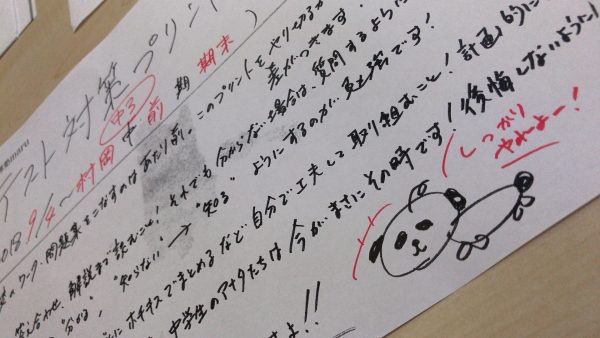 テスト対策プリント
2018 9/4～ 村岡中 中3 前期 期末 )
ワーク、問題集をこなすのはあたり前。このプリントをやりきるか
差がつきます。
答え合わせ、解説まで読むこと！それでも分からない場合は、質問するように
"分かる" "知らない"→"知る"ようにするのが勉強です！
ホチキスでまとめるなど自分で工夫して取り組むこと！計画的に
中学生のアナタたちは今がまさにその時です！後悔しないように！
しっかり
やれよー！